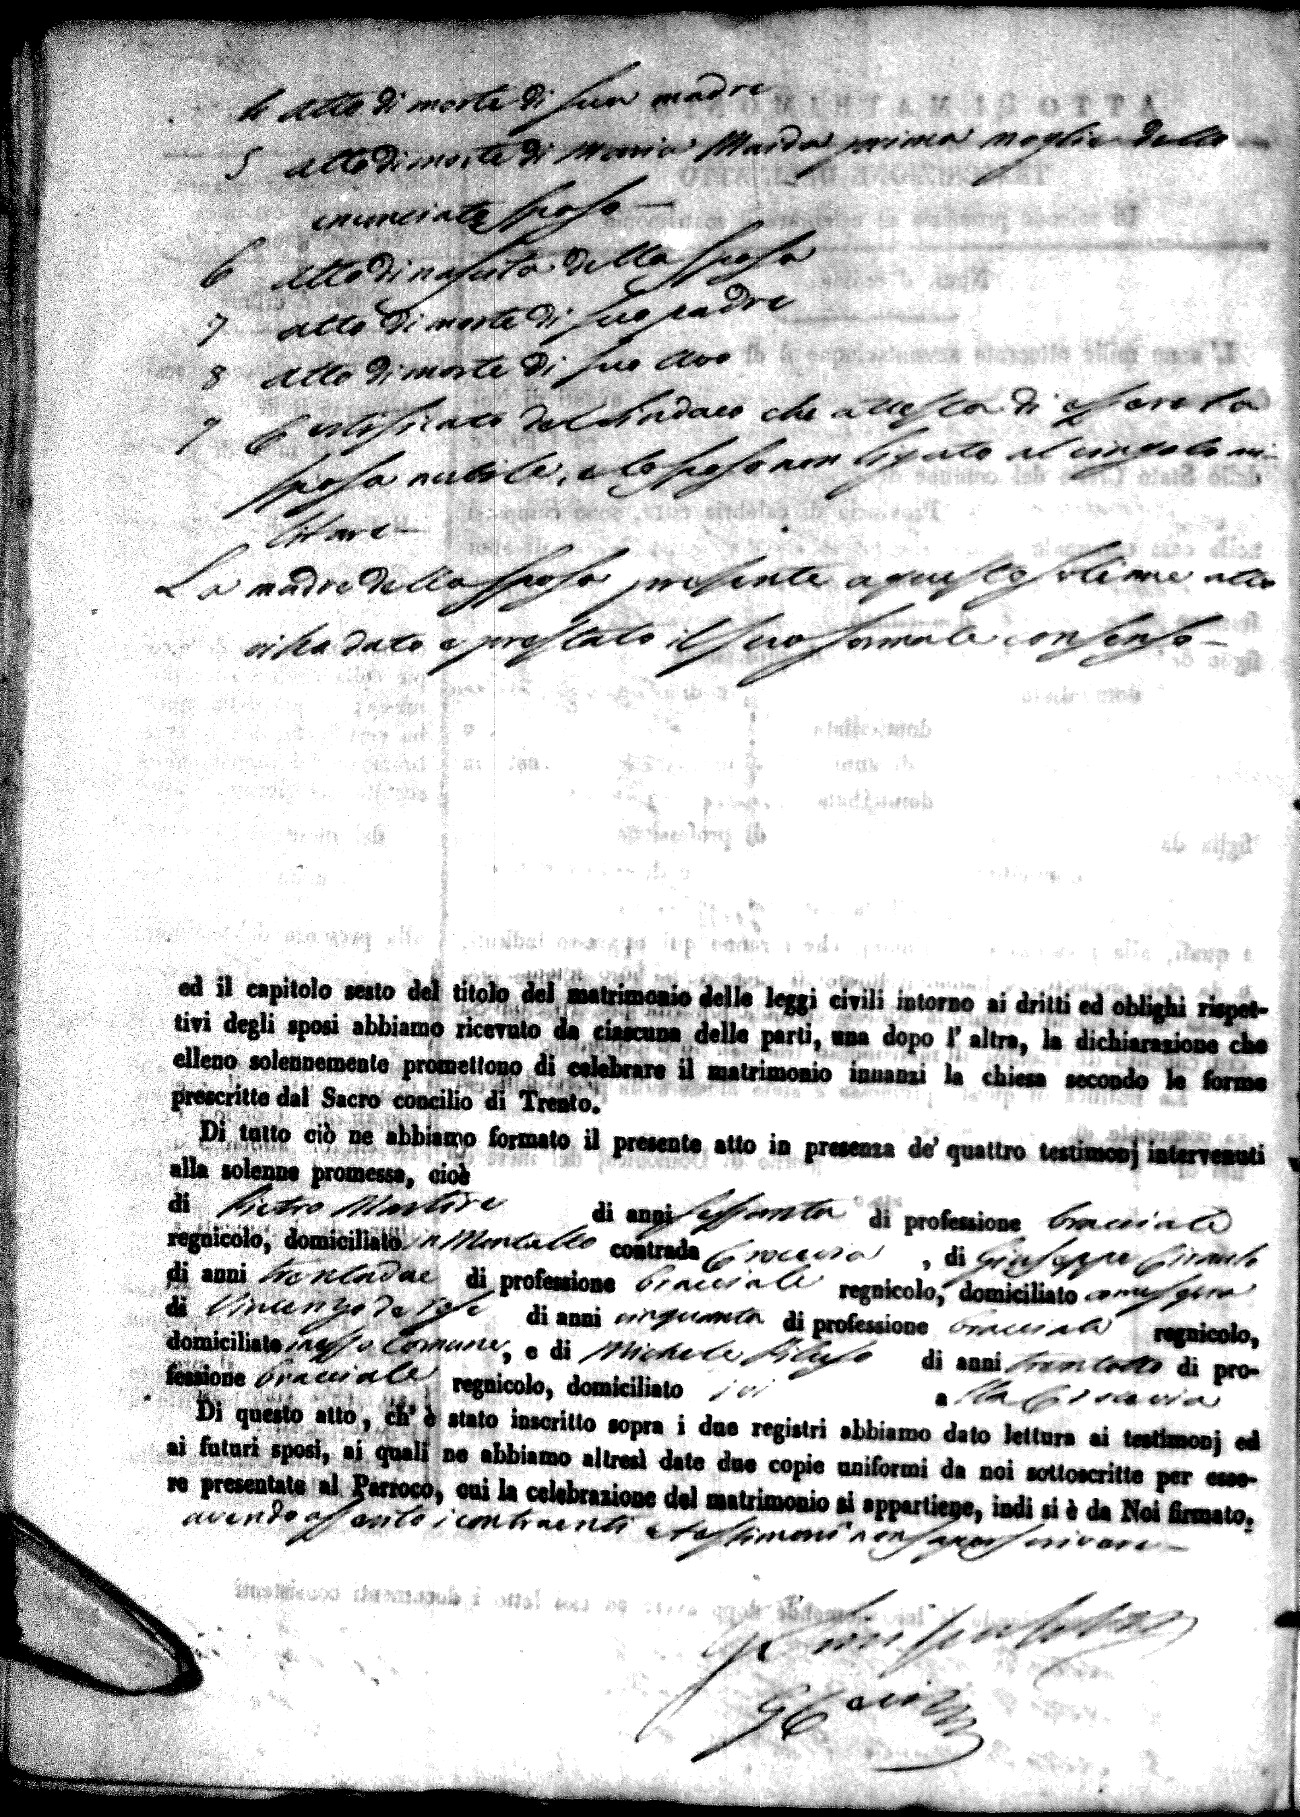 4 Atto di morte di sua madre
5 Atto di morte di Maria Marda prima moglie dello
enunciato sposo —
6 Atto di nascita della sposa
7 Atto di morte di suo padre
8 Atto di morte di suo avo
9 Certificato del Sindaco che attesta di essere la
sposa nubile, e lo sposo non ligato al cingolo mi-
litare —
La madre della sposa presente a questo solenne atto
vi ha dato e prestato il suo formale consenso —
ed il capitolo sesto del titolo del matrimonio delle leggi civili intorno ai dritti ed oblighi rispet-
tivi degli sposi abbiamo ricevuto da ciascuna delle parti, una dopo l' altra, la dichiarazione che
elleno solennemente promettono di celebrare il matrimonio innanzi la chiesa secondo le forme
prescritte dal Sacro concilio di Trento.
Di tutto ciò ne abbiamo formato il presente atto in presenza de' quattro testimonj intervenuti
alla solenne promessa, cioè
di Pietro Martire di anni sessanta di professione bracciale
regnicolo, domiciliato in Montalto contrada Crocevia, di Giuseppe
di anni trentadue di professione bracciale regnicolo, domiciliato come sopra
di Vincenzo de Rose di anni cinquanta di professione bracciale regnicolo,
domiciliato in esso Comune, e di Michele di anni trentotto di pro-
fessione bracciale regnicolo, domiciliato ivi alla Crocevia
Di questo atto, ch' è stato inscritto sopra i due registri abbiamo dato lettura ai testimonj ed
ai futuri sposi, ai quali ne abbiamo altresì date due copie uniformi da noi sottoscritte per esse-
re presentate al Parroco, cui la celebrazione del matrimonio si appartiene, indi si è da Noi firmato,
avendo asserito i contraenti e testimoni non saper scrivere —